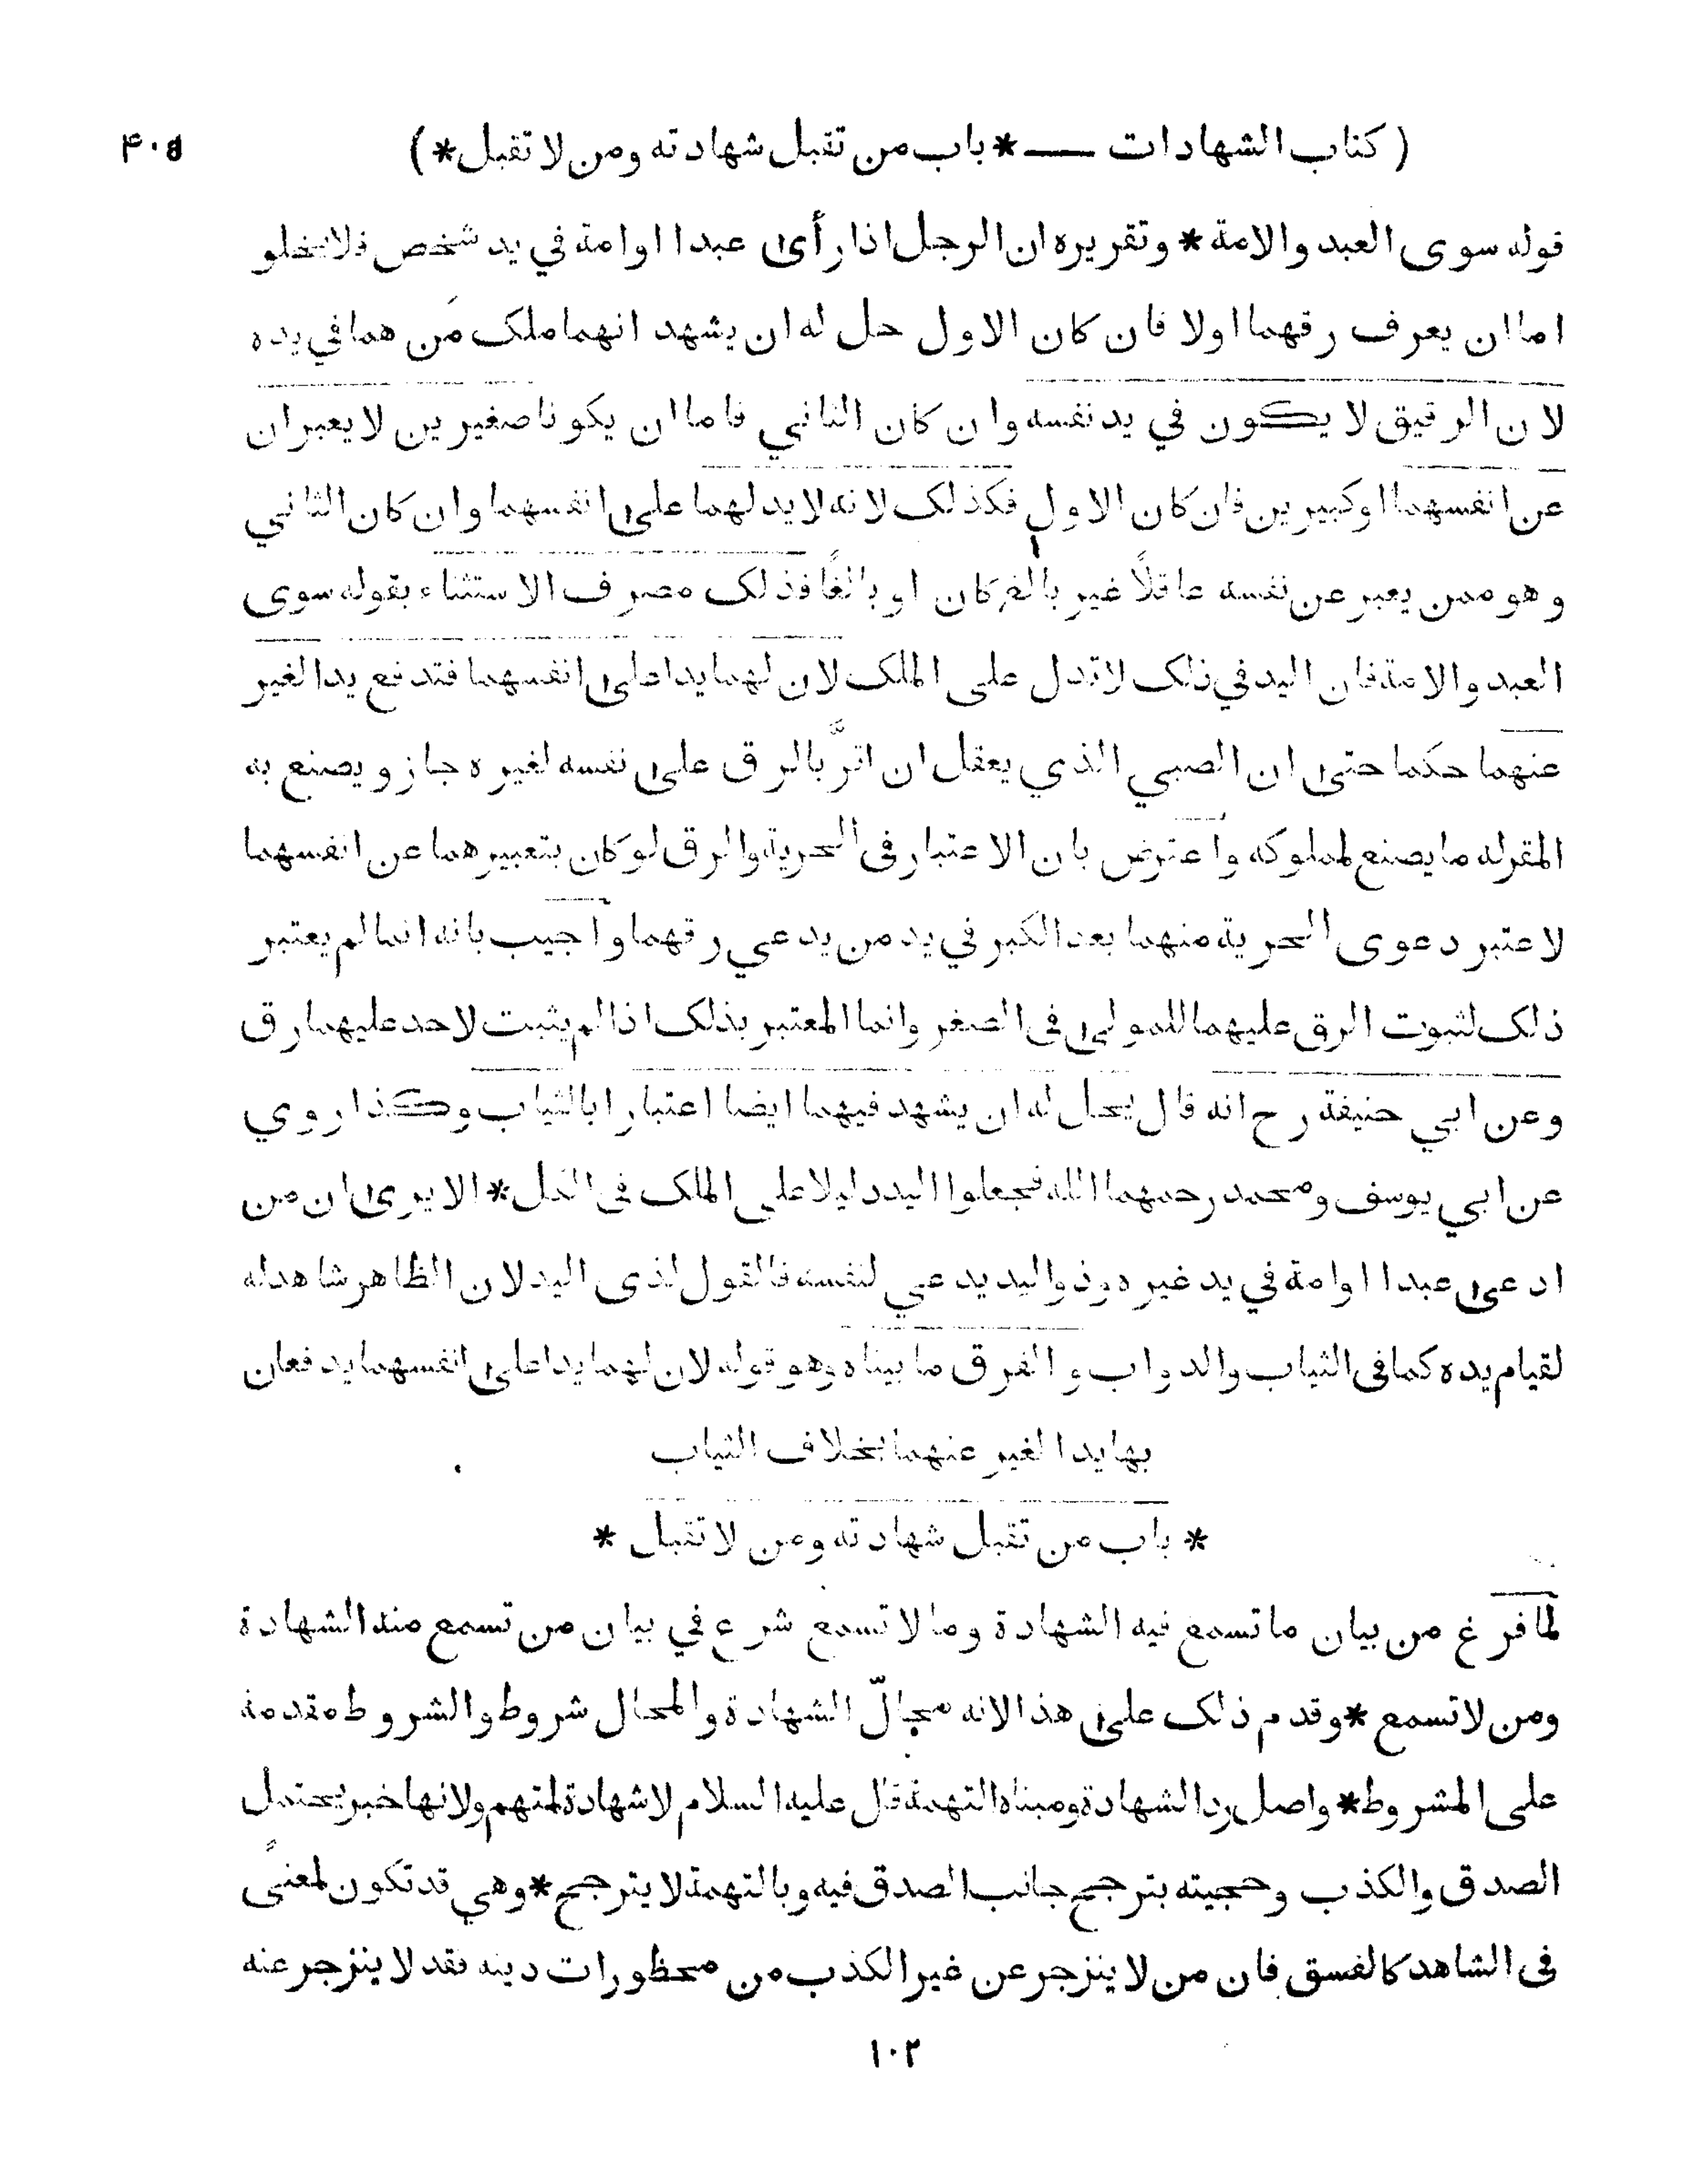 ( كتاب الشهادات — * باب من تقبل شهادته ومن لا تقبل * ) ۴۰۵
قوله سوى العبد والامة * وتقريره ان الرجل اذا رأى عبدا او امة في يد شخص فلا يخلو
اما ان يعرف رقهما اولا فان كان الاول حل له ان يشهد انهما ملك مَن هما في يده
لان الرقيق لا يكون في يد نفسه وان كان الثاني فاما ان يكونا صغيرين لا يعبران
عن انفسهما او كبيرين فان كان الاول فكذلك لانه لا يد لهما على انفسهما وان كان الثاني
وهو ممن يعبر عن نفسه عاقلاً غير بالغ كان او بالغًا فذلك مصرف الاستثناء بقوله سوى
العبد والامة فان اليد في ذلك لا تدل على الملك لان لهما يدا على انفسهما فتدفع يد الغير
عنهما حكما حتى ان الصبي الذي يعقل ان اقرَّ بالرق على نفسه لغيره جاز ويصنع به
المقر له ما يصنع لمملوكه واعترض بان الاعتبار فى الحرية والرق لو كان بتعبيرهما عن انفسهما
لاعتبر دعوى الحرية منهما بعد الكبر في يد من يدعي رقهما واجيب بانه انما لم يعتبر
ذلك لثبوت الرق عليهما للمولى فى الصغر وانما المعتبر بذلك اذا لم يثبت لاحد عليهما رق
وعن ابي حنيفة رح انه قال يحل له ان يشهد فيهما ايضا اعتبارا بالثياب وكذا روي
عن ابي يوسف ومحمد رحمهما الله فجعلوا اليد دليلا على الملك فى الكل * الا يرى ان من
ادعى عبدا او امة في يد غيره وذو اليد يدعي لنفسه فالقول لذى اليد لان الظاهر شاهد له
لقيام يده كما فى الثياب والدواب والفرق ما بيناه وهو قوله لان لهما يدا على انفسهما يدفعان
بها يد الغير عنهما بخلاف الثياب
* باب من تقبل شهادته ومن لا تقبل *
لما فرغ من بيان ما تسمع فيه الشهادة وما لا تسمع شرع في بيان من تسمع منه الشهادة
ومن لا تسمع * وقدم ذلك على هذا لانه محالّ الشهادة والمحال شروط والشروط مقدمة
على المشروط * واصل رد الشهادة ومبناه التهمة قال عليه السلام لا شهادة لمتهم ولانها خبر يحتمل
الصدق والكذب وحجيته بترجح جانب الصدق فيه وبالتهمة لا يترجح * وهي قد تكون لمعنىً
فى الشاهد كالفسق فان من لا ينزجر عن غير الكذب من محظورات دينه فقد لا ينزجر عنه
۱۰۲